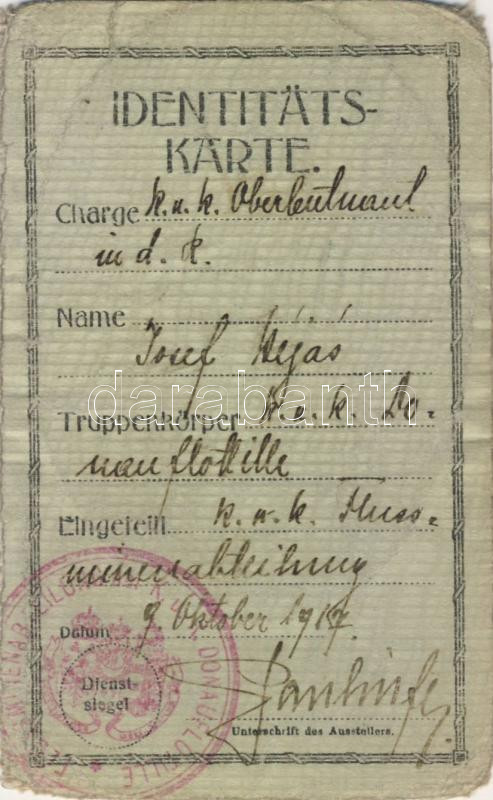 IDENTITÄTS-
KARTE.
Charge k. u. k. Oberleutnant
in d. R.
Name
Josef Héjás
darabanth
Truppenkörper k. u. k. Do-
nauflottille
Eingeteilt k. u. k. Fluss-
minenabteilung
Datum 9. Oktober 1917.
Dienst-
siegel
DONAUFLOTTILLE
Unterschrift des Ausstellers.